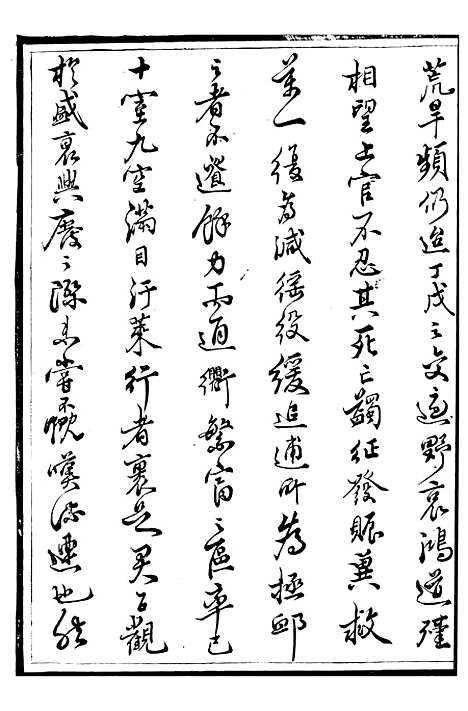 荒旱頻仍迨丁戊之交遍野哀鴻道殣
相望上官不忍其死亡蠲征發賑冀救
萬一復為減徭役緩追逋所為拯卹
之者不遺餘力而通衢繁富之區率已
十室九空滿目汙萊行者裹足君子觀
於盛衰興廢之際未嘗不慨嘆流連也能